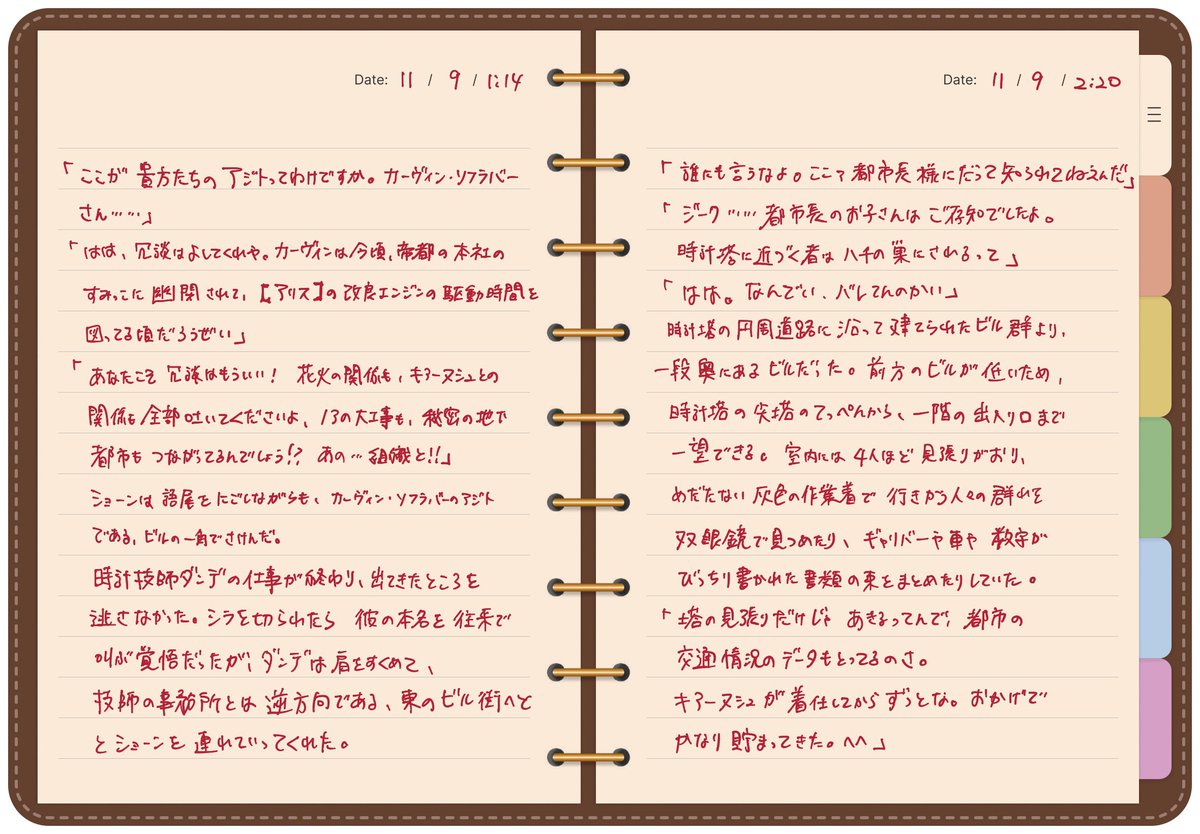 Date: 11 / 9 / 1:14
「ここが 貴方たちの アジトってわけですか。カーヴィン・ソフラバー
さん……」
「はは、冗談はよしてくれや。カーヴィンは今頃、帝都の本社の
すみっこに 幽閉されて、【アリス】の改良エンジンの駆動時間を
図ってる頃だろうぜい」
「あなたこそ 冗談はもういい! 花火の関係も、キアーヌシュとの
関係も全部吐いてくださいよ、13の大工事も、秘密の地で
都市も つながってるんでしょう!? あの…組織と!!」
ショーンは 語尾をにごしながらも、カーヴィン・ソフラバーのアジト
である、ビルの一角でさけんだ。
時計技師ダンデの仕事が終わり、出てきたところを
逃さなかった。シラを切られたら 彼の本名を 往来で
叫ぶ覚悟だったが、ダンデは肩をすくめて、
技師の事務所とは 逆方向である、東のビル街へと
とショーンを 連れていってくれた。
Date: 11 / 9 / 2:20
「誰にも言うなよ。ここァ都市長様にだって知られてねえんだ」
「ジーク……都市長のお子さんは ご存知でしたよ。
時計塔に近づく者は ハチの巣にされるって」
「はは。なんでい、バレてんのかい」
時計塔の円周道路に沿って建てられたビル群より、
一段奥にあるビルだった。前方のビルが低いため、
時計塔の尖塔のてっぺんから、一階の出入り口まで
一望できる。室内には4人ほど見張りがおり、
めだたない灰色の作業着で 行きかう人々の群れを
双眼鏡で見つめたり、ギャリバーや車や 数字が
びっちり書かれた書類の束をまとめたりしていた。
「塔の見張りだけじゃ あきるってんで、都市の
交通情況のデータもとってるのさ。
キアーヌシュが着任してからずっとな。おかげで
かなり貯まってきた。へへ」